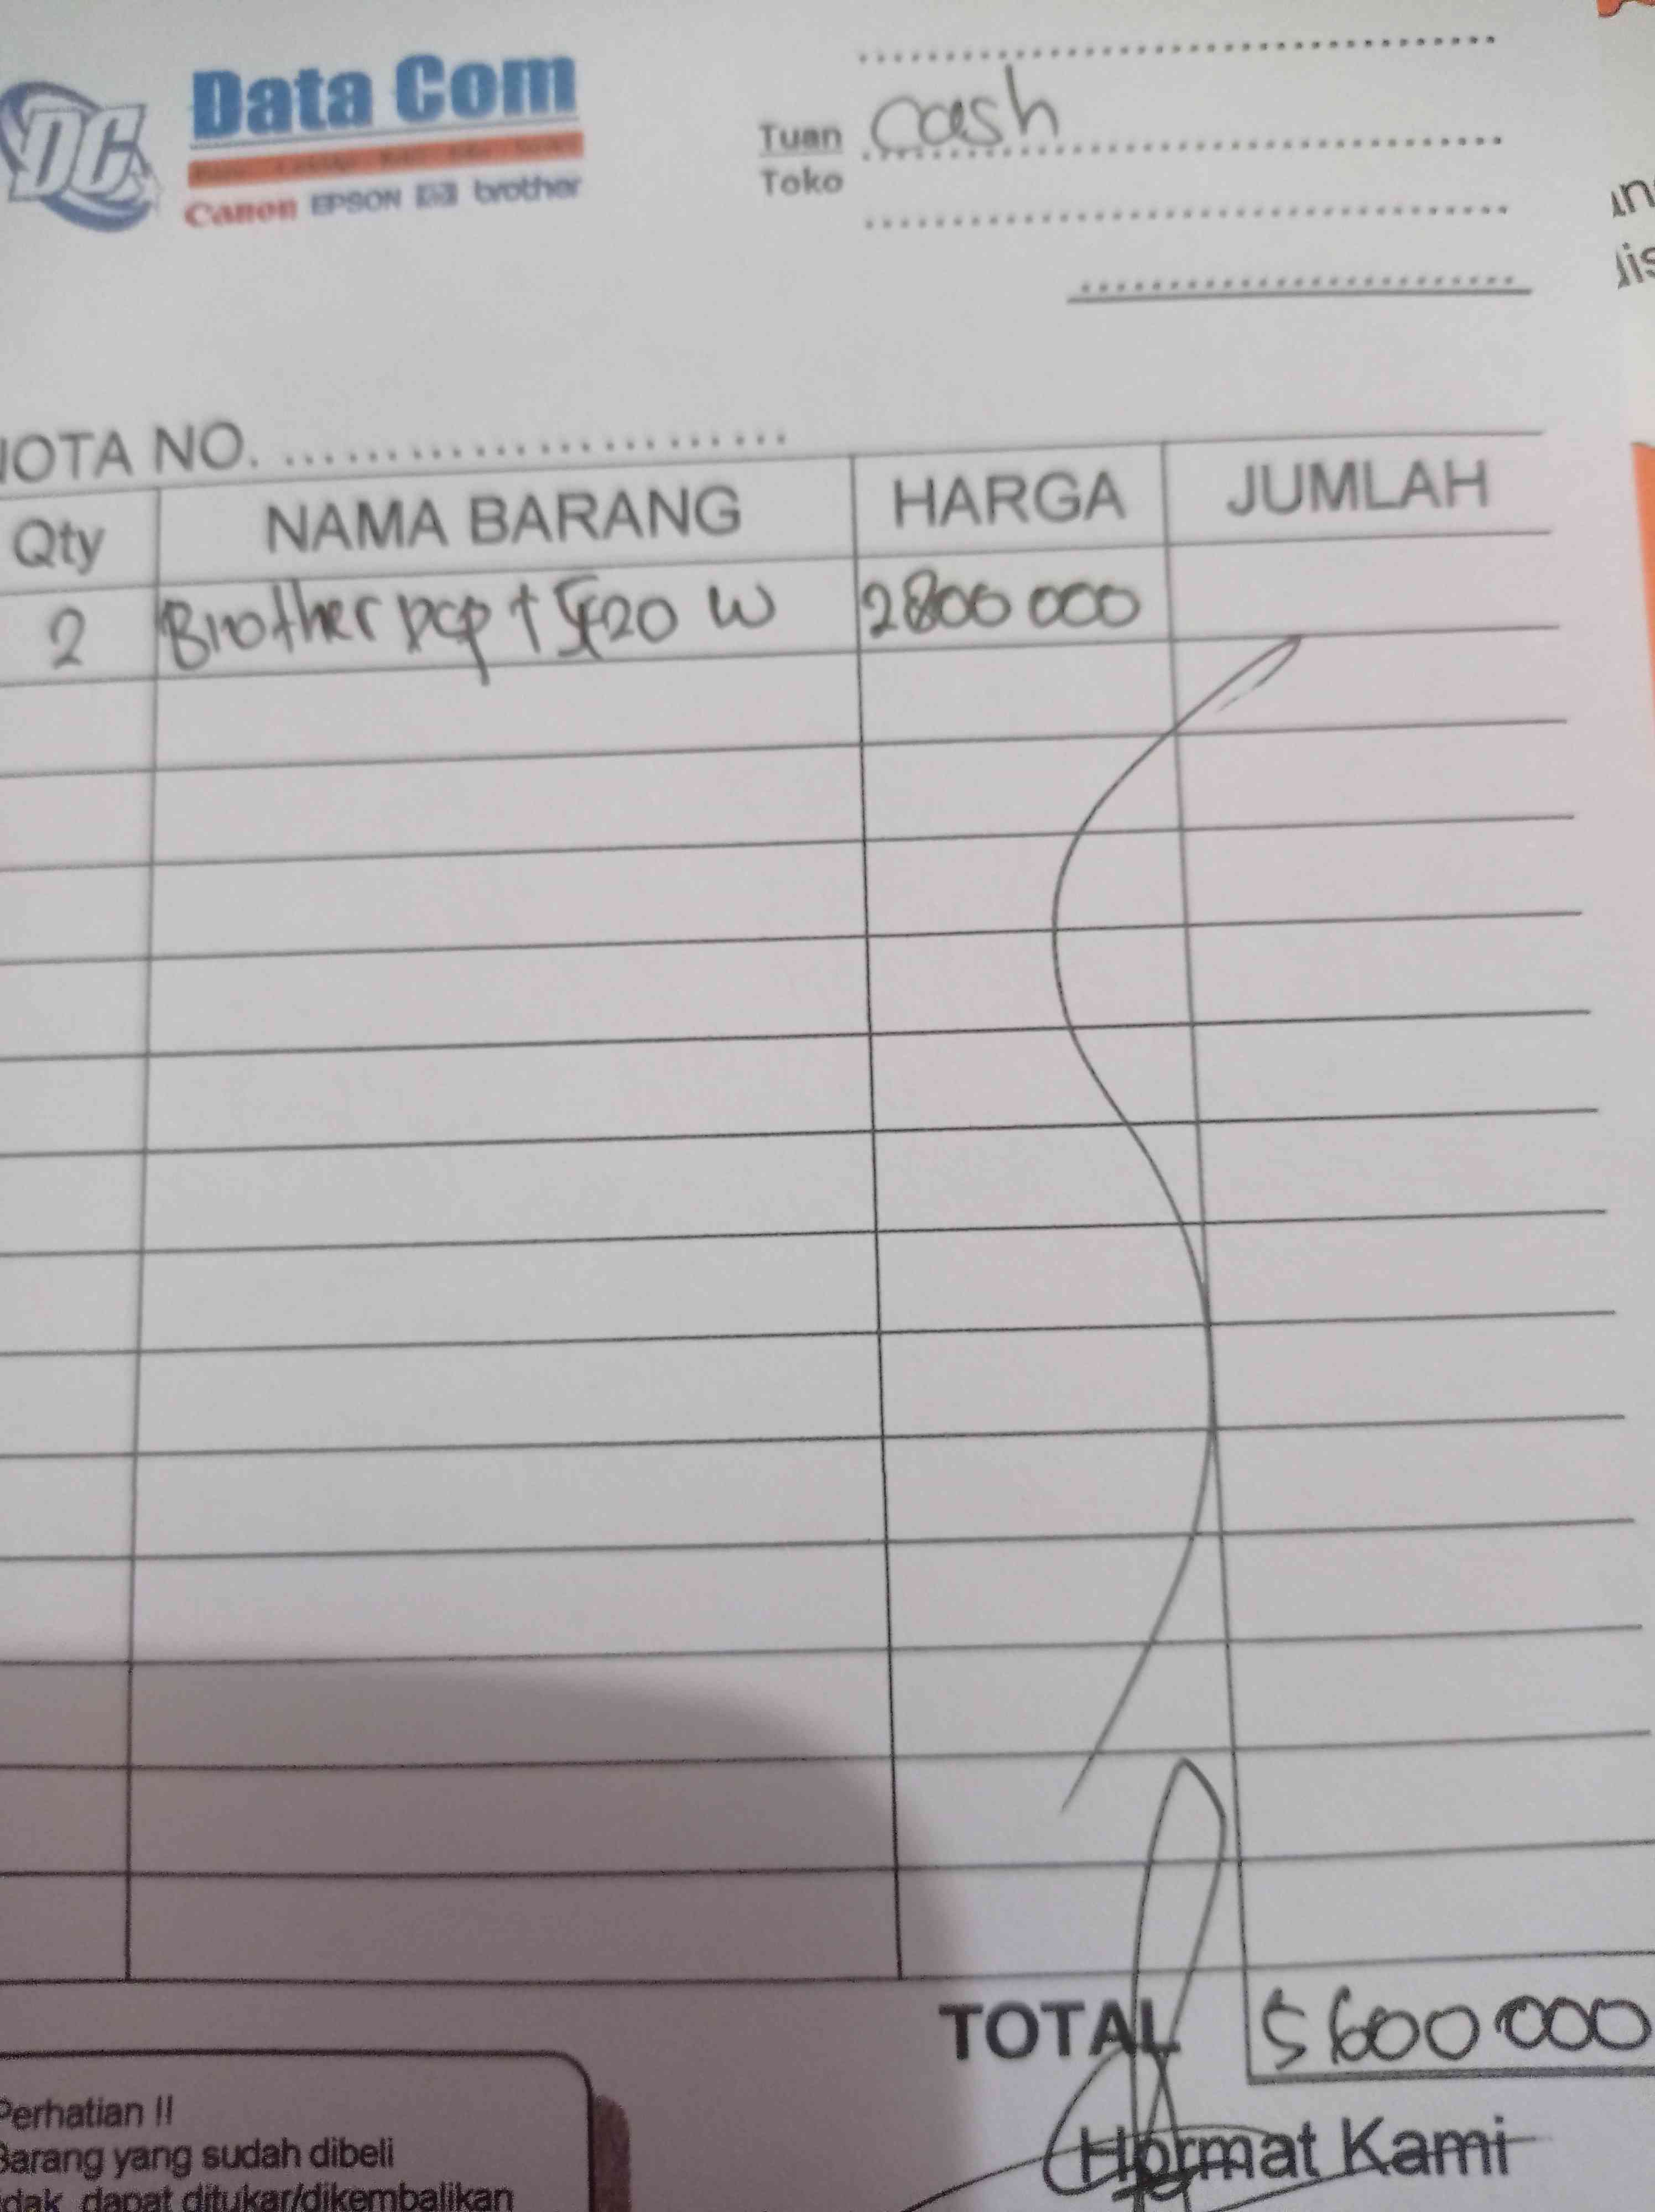 DC
Data Com
Canon EPSON hp brother
Tuan Cash
Toko
NOTA NO.
Qty NAMA BARANG HARGA JUMLAH
2 Brother DCP T 520 W 2800 000
TOTAL 5 600 000
Perhatian !!
Barang yang sudah dibeli
tidak dapat ditukar/dikembalikan
Hormat Kami